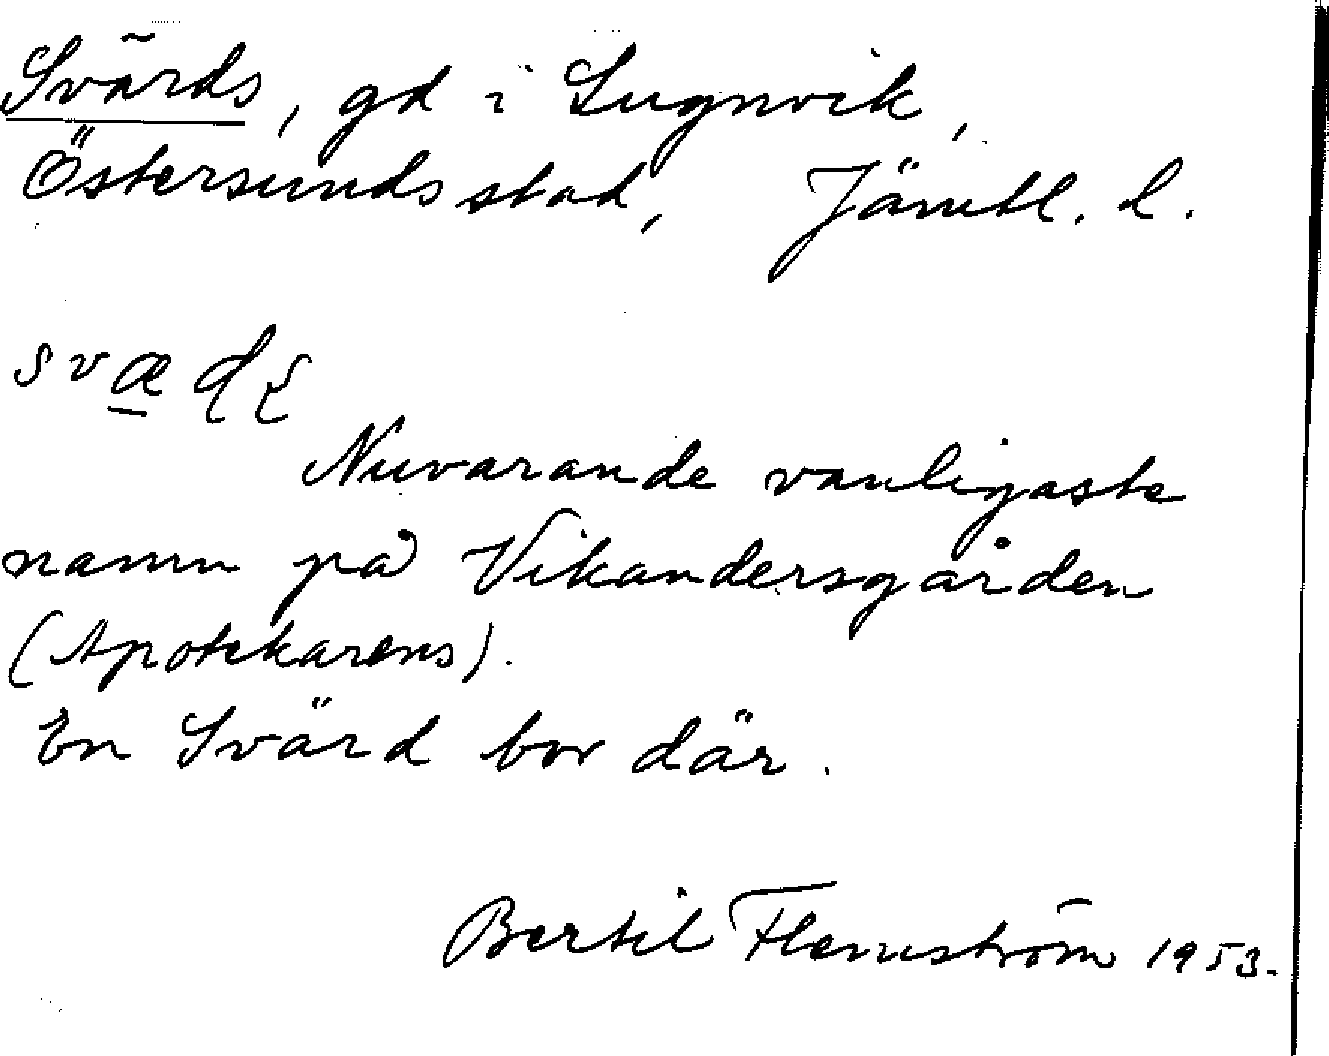 Svärds, gd i Lugnvik,
Östersunds stad, Jämtl. l.
svæɖʂ
Nuvarande vanligaste
namn på Vikandersgården
(Apotekarens).
En Svärd bor där.
Bertil Flemström 1953.